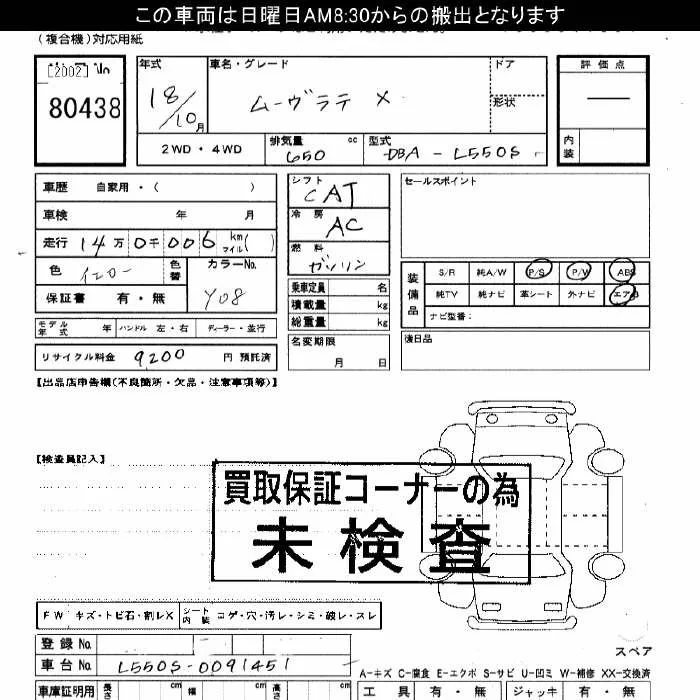 この車両は日曜日AM8:30からの搬出となります
(複合機)対応用紙
[2002] No
80438
年式 18/10月
車名・グレード ムーヴラテ X
ドア
形状
評価点
内装
2WD・4WD
排気量 cc 650
型式 DBA - L550S
車歴 自家用・( )
シフト CAT
セールスポイント
車検 年 月
冷房 AC
走行 14万 0千 006 km マイル( )
燃料 ガソリン
色 イエロー
色替
カラーNo. Y08
装備品
S/R 純A/W P/S P/W ABS
純TV 純ナビ 革シート 外ナビ エアB
ナビ型番:
保証書 有・無
乗車定員 名
積載量 kg
総重量 kg
モデル年式 年 ハンドル 左・右 ディーラー・並行
リサイクル料金 9200 円 預託済
名変期限 月 日
後日品
【出品店申告欄(不良箇所・欠品・注意事項等)】
【検査員記入】
買取保証コーナーの為
未検査
FW キズ・トビ石・割レX シート内装 コゲ・穴・汚レ・シミ・破レ・スレ
登録 No.
車台 No. L550S-0091451
スペア
A-キズ C-腐食 E-エクボ S-サビ U-凹ミ W-補修 XX-交換済
車庫証明用 長さ cm 幅 cm 高さ cm
工具 有・無 ジャッキ 有・無